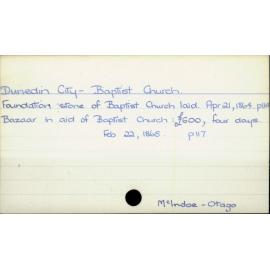 Dunedin City - Baptist Church.
Foundation stone of Baptist Church laid. Apr 21, 1864.
Bazaar in aid of Baptist Church: £600, four days.
Feb 22, 1865. p117
McIndoe - Otago